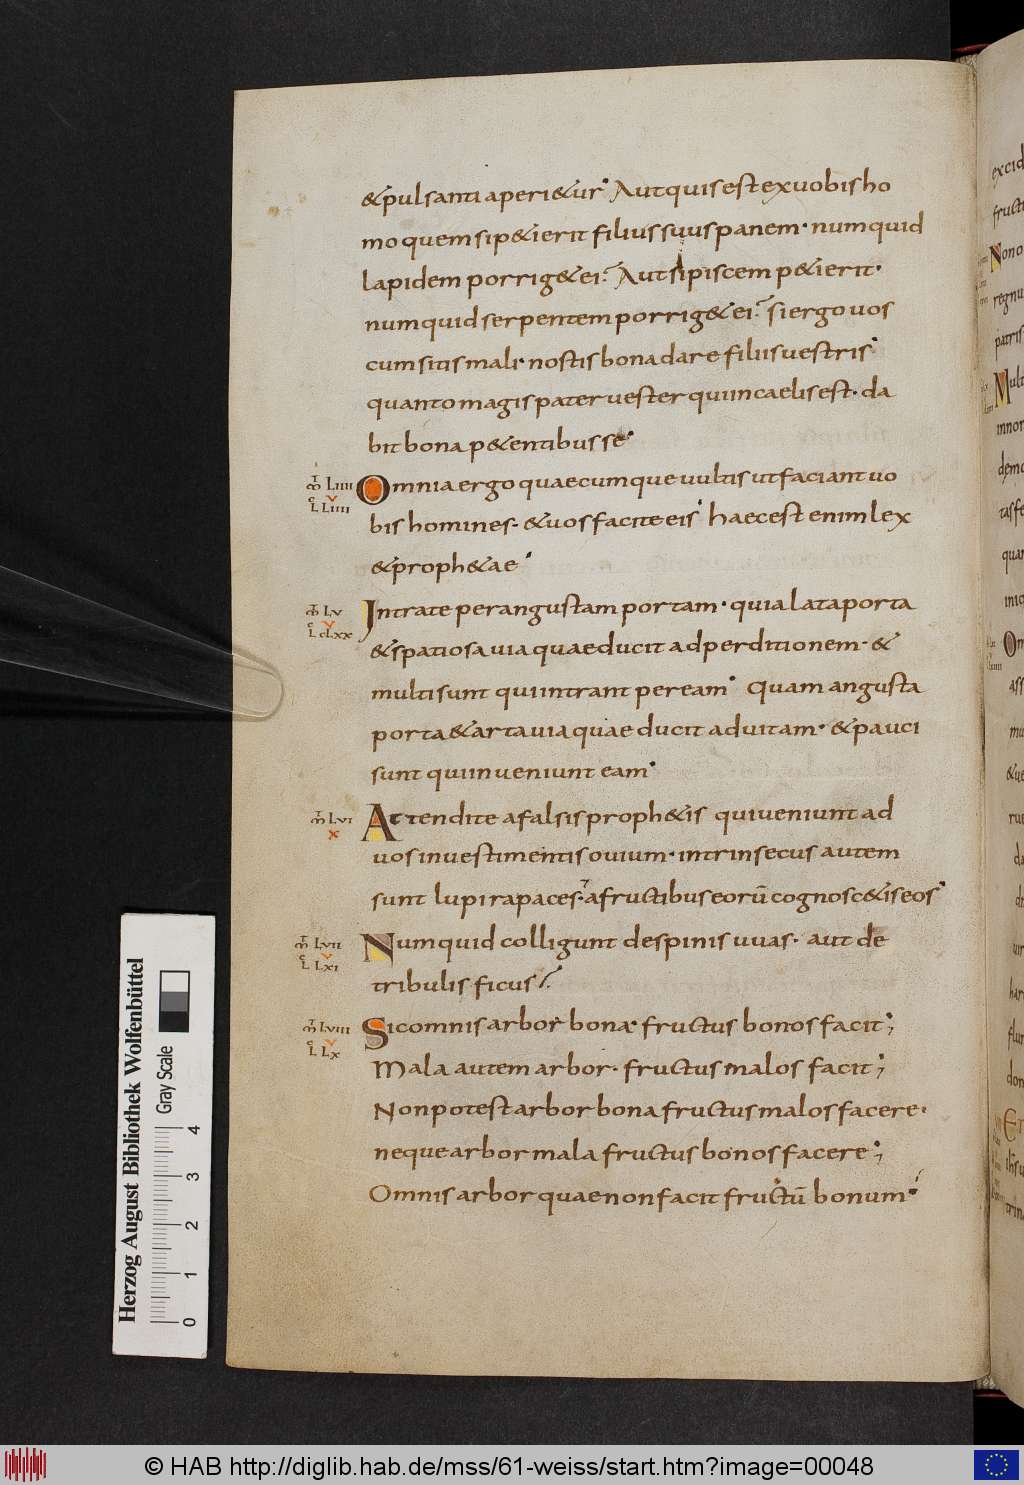 &pulsanti aperi&ur Aut quis est ex uobis ho
mo quem si p&ierit filius suus panem· numquid
lapidem porrig& ei? Aut si piscem p&ierit·
numquid serpentem porrig& ei? si ergo uos
cum sitis mali· nostis bona dare filiis uestris
quanto magis pater uester qui in caelis est· da
bit bona p&entibus se
m̄ LIIII Omnia ergo quaecumque uultis ut faciant uo
L LIIII bis homines· &uos facite eis haec est enim lex
&proph&ae
m̄ LV Intrate per angustam portam· quia lata porta
L CLXX &spatiosa uia quae ducit ad perditionem· &
multi sunt qui intrant per eam Quam angusta
porta &arta uia quae ducit ad uitam· &pauci
sunt qui inueniunt eam
m̄ LVI Attendite a falsis proph&is qui ueniunt ad
x uos in uestimentis ouium· intrinsecus autem
sunt lupi rapaces· a fructibus eorū cognosc&is eos
m̄ LVII Numquid colligunt de spinis uuas· aut de
L LXI tribulis ficus?
m̄ LVIII Sic omnis arbor bona fructus bonos facit;
L LX Mala autem arbor· fructus malos facit;
Non potest arbor bona fructus malos facere·
neque arbor mala fructus bonos facere;
Omnis arbor quae non facit fructū bonum
excid
fructi
Nono
regnu
patris
Mult
innom
demo
tas fe
quan
iniq
Om
ass
Herzog August Bibliothek Wolfenbüttel
Gray Scale
0 1 2 3 4
© HAB http://diglib.hab.de/mss/61-weiss/start.htm?image=00048